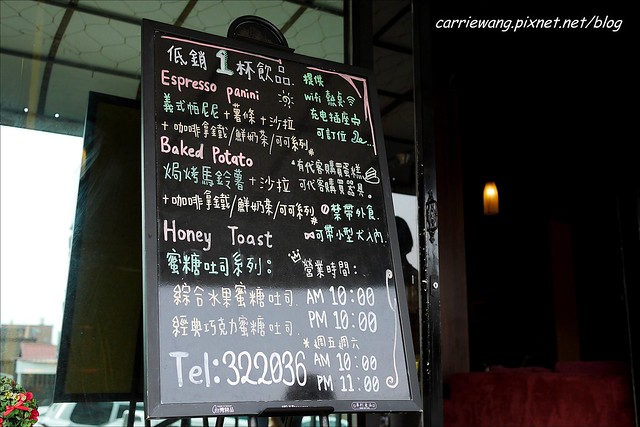 carriewang.pixnet.net/blog
低銷1杯飲品
Espresso panini
義式帕尼尼+薯條+沙拉
+咖啡拿鐵/鮮奶茶/可可系列*
Baked Potato
焗烤馬鈴薯+沙拉
+咖啡拿鐵/鮮奶茶/可可系列*
Honey Toast
蜜糖吐司系列:
綜合水果蜜糖吐司
經典巧克力蜜糖吐司
Tel:322036
提供
wifi 熱桌
充電插座
可訂位
*有代客購買蛋糕
可代客購買器具。
禁帶外食.
可帶小型犬入內.
營業時間:
AM 10:00
PM 10:00
*週五週六
AM 10:00
PM 11:00